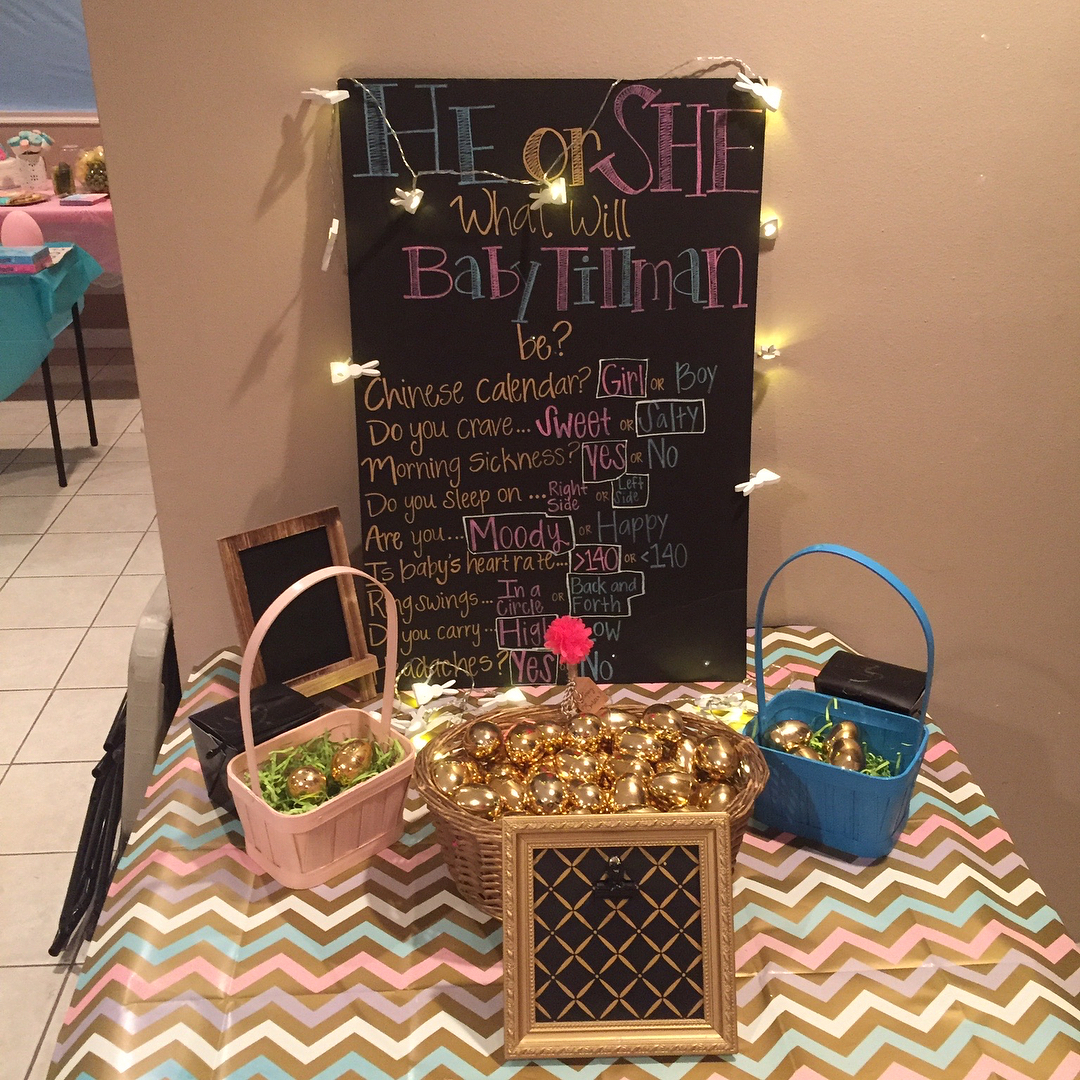 HE or SHE
What Will
Baby Tillman
be?
Chinese Calendar? Girl or Boy
Do you crave... Sweet or Salty
Morning Sickness? Yes or No
Do you sleep on ... Right Side or Left Side
Are you... Moody or Happy
Is baby's heart rate... >140 or <140
Ring swings... In a Circle or Back and Forth
you carry... High
Yes or No